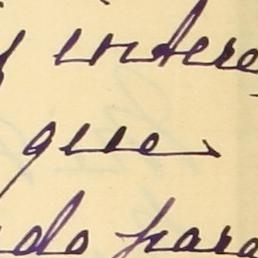 y intere
que
ndo para